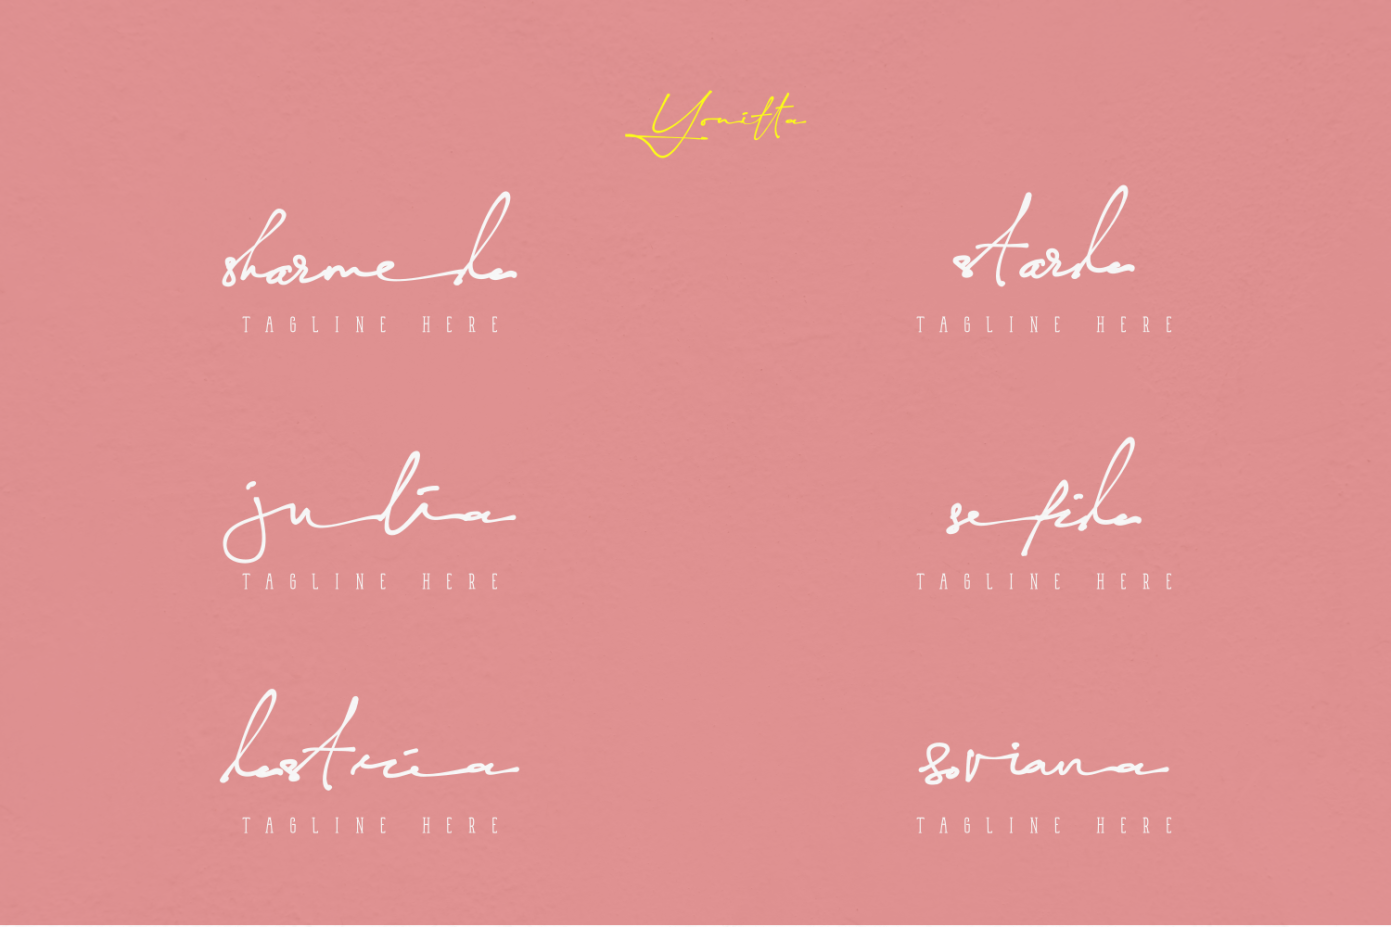 Yonitta
sharmela
starla
TAGLINE HERE
TAGLINE HERE
julia
sefila
TAGLINE HERE
TAGLINE HERE
lastria
soviana
TAGLINE HERE
TAGLINE HERE